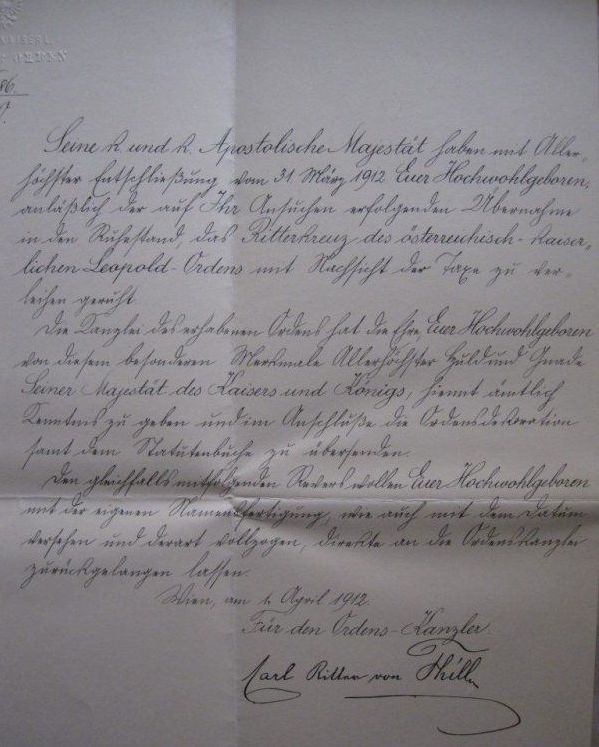 86.
Seine k. und k. Apostolische Majestät haben mit Aller-
höchster Entschließung vom 31 März 1912 Euer Hochwohlgeboren,
anläßlich der auf Ihr Ansuchen erfolgenden Übernahme
in den Ruhestand, das Ritterkreuz des österreichisch-kaiser-
lichen Leopold-Ordens mit Nachsicht der Taxe zu ver-
leihen geruht
Die Kanzlei des erhabenen Ordens hat die Ehre, Euer Hochwohlgeboren
von diesem besonderen Merkmale Allerhöchster Huld und Gnade
Seiner Majestät des Kaisers und Königs, hiemit ämtlich
Kenntnis zu geben und im Anschluße die Ordensdekoration
samt dem Statutenbuche zu übersenden.
Den gleichfalls mitfolgenden Revers wollen Euer Hochwohlgeboren
mit der eigenen Namensfertigung, wie auch mit dem Datum
versehen und derart vollzogen, direkte an die Ordenskanzlei
zurückgelangen lassen.
Wien, am 1. April 1912.
Für den Ordens-Kanzler
Carl Ritter von